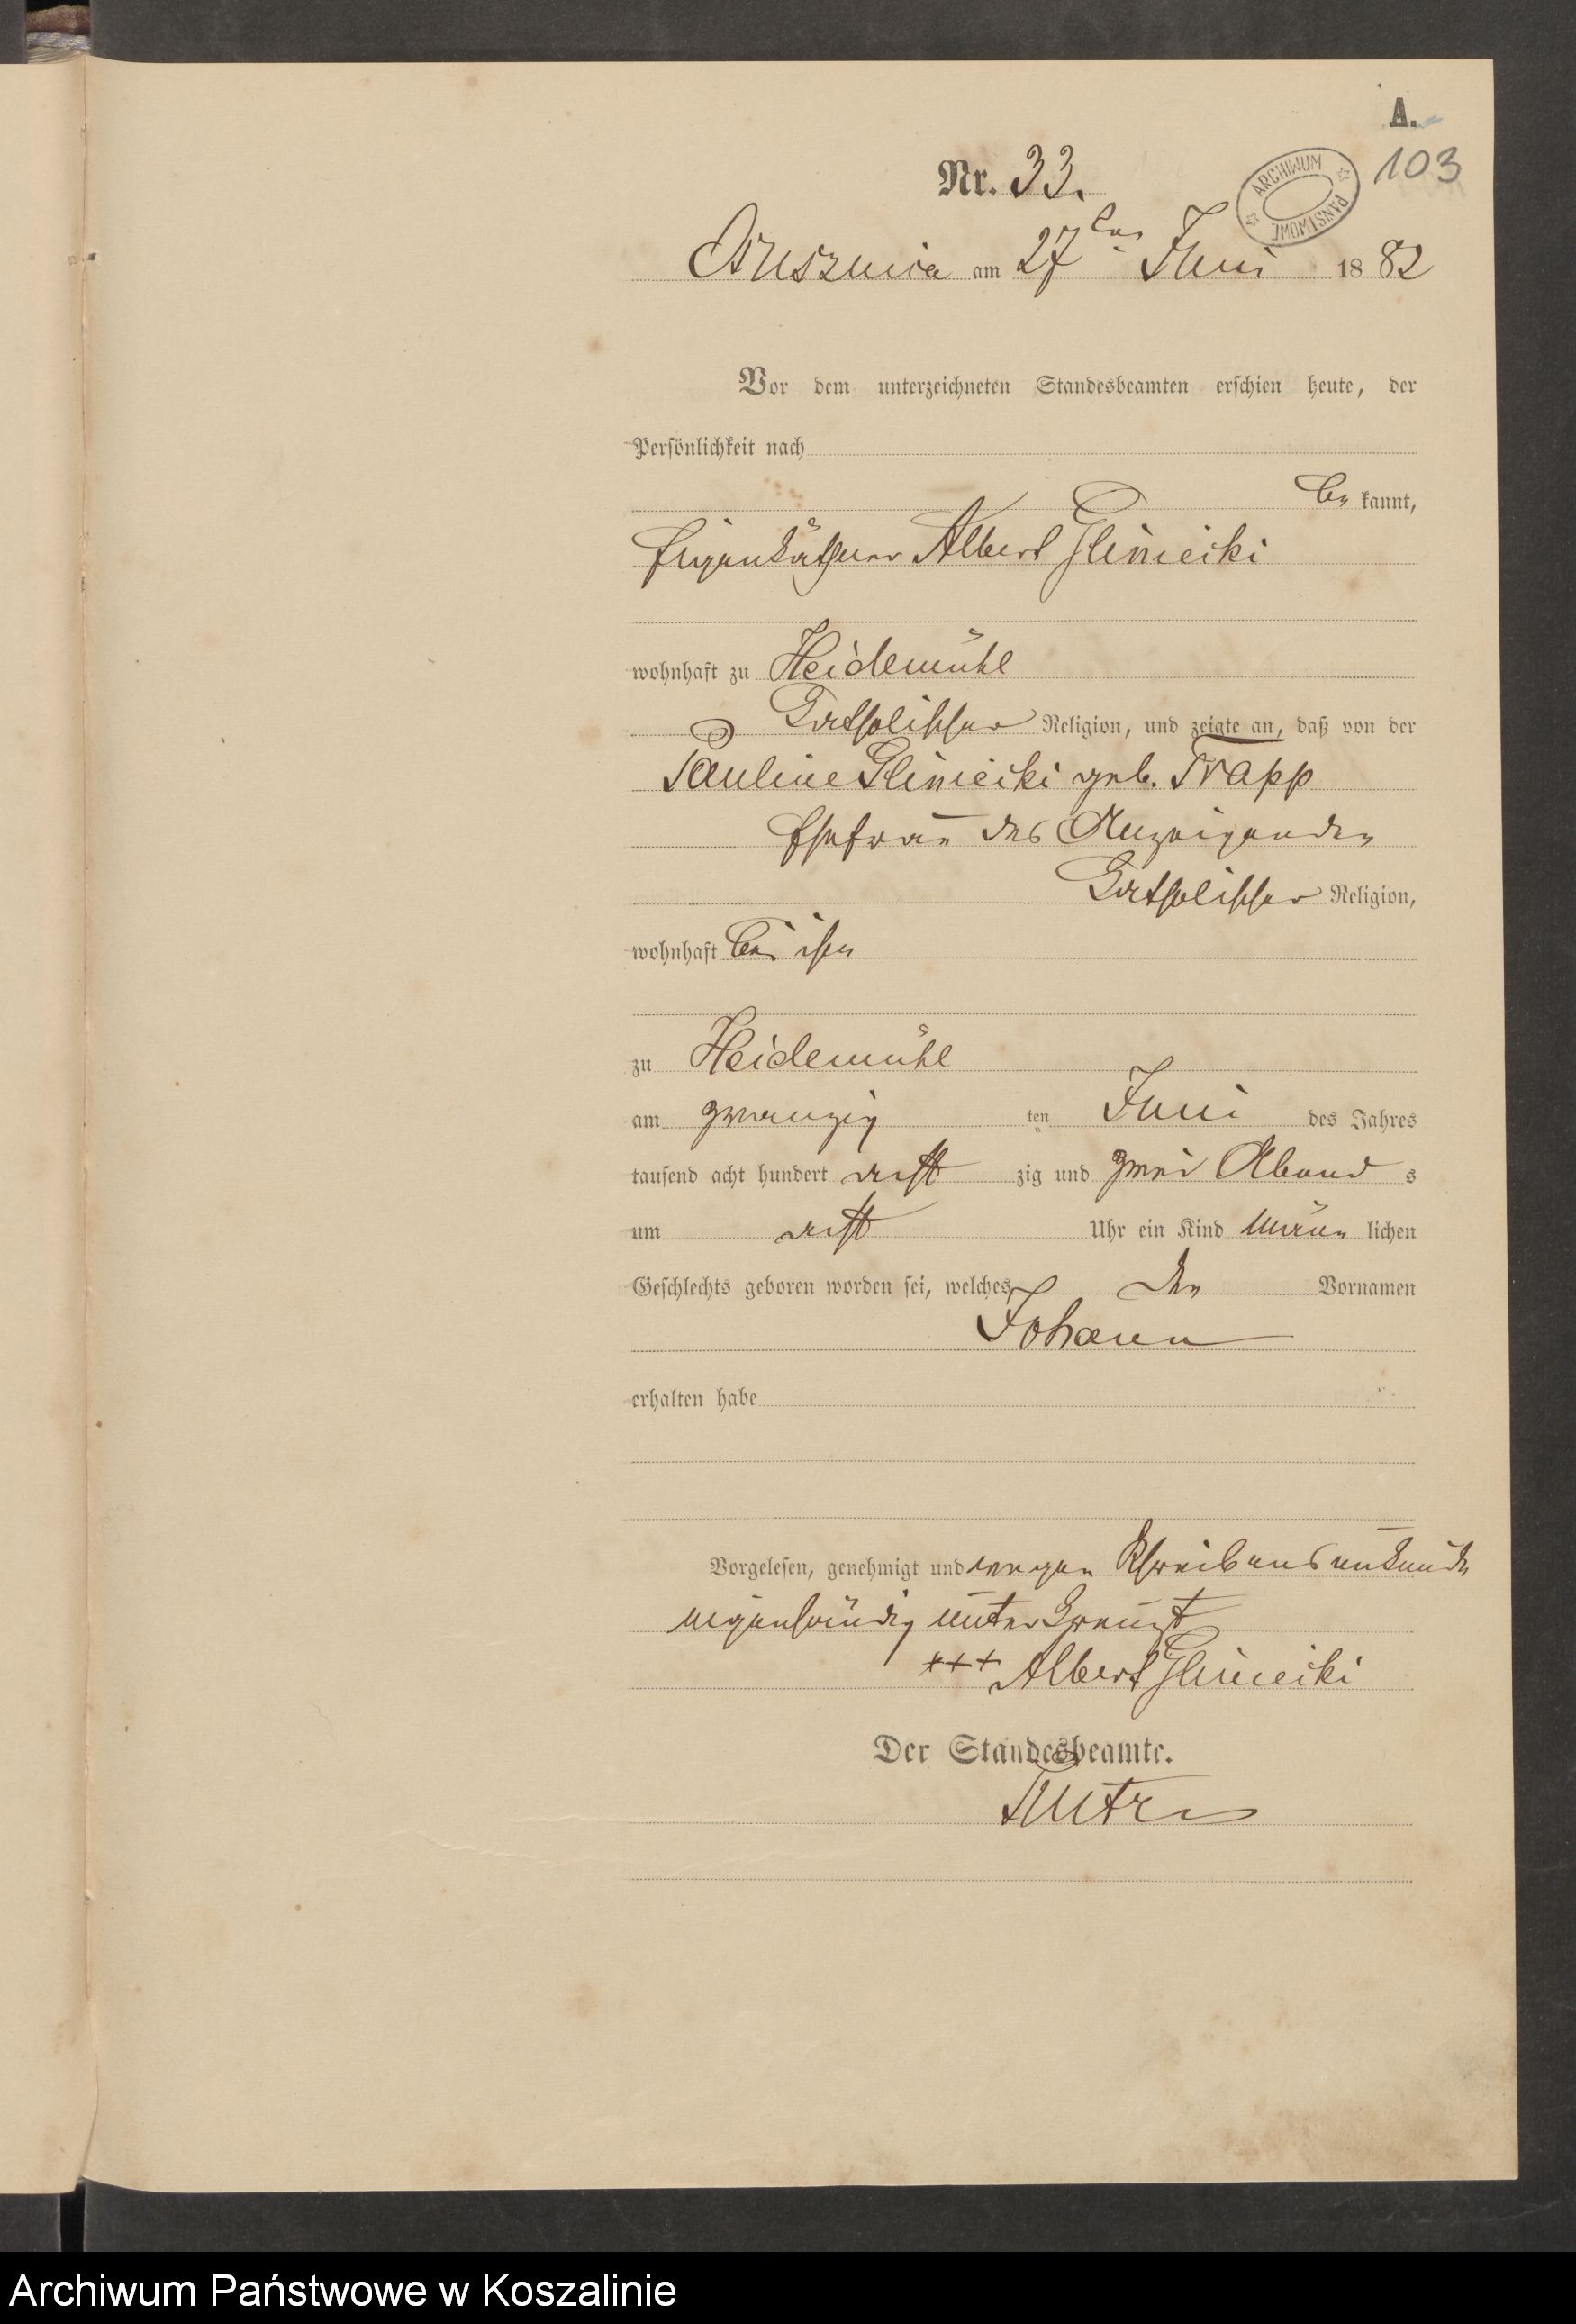 A.
103
ARCHIWUM PAŃSTWOWE
Nr. 33.
Osusznica am 27ten Juni 1882
Vor dem unterzeichneten Standesbeamten erschien heute, der
Persönlichkeit nach
be kannt,
Eigenkäthner Albert Glimecki
wohnhaft zu Heidemühl
katholischer Religion, und zeigte an, daß von der
Pauline Glimecki geb. Trapp
Ehefrau des Anzeigenden
katholischer Religion,
wohnhaft bei ihm
zu Heidemühl
am zwanzig ten Juni des Jahres
tausend acht hundert acht zig und zwei Abend s
um acht Uhr ein Kind männ lichen
Geschlechts geboren worden sei, welches den Vornamen
Johann
erhalten habe
Vorgelesen, genehmigt und wegen Schreibensunkunde
eigenhändig unterkreuzt
+++ Albert Glimecki
Der Standesbeamte.
Archiwum Państwowe w Koszalinie